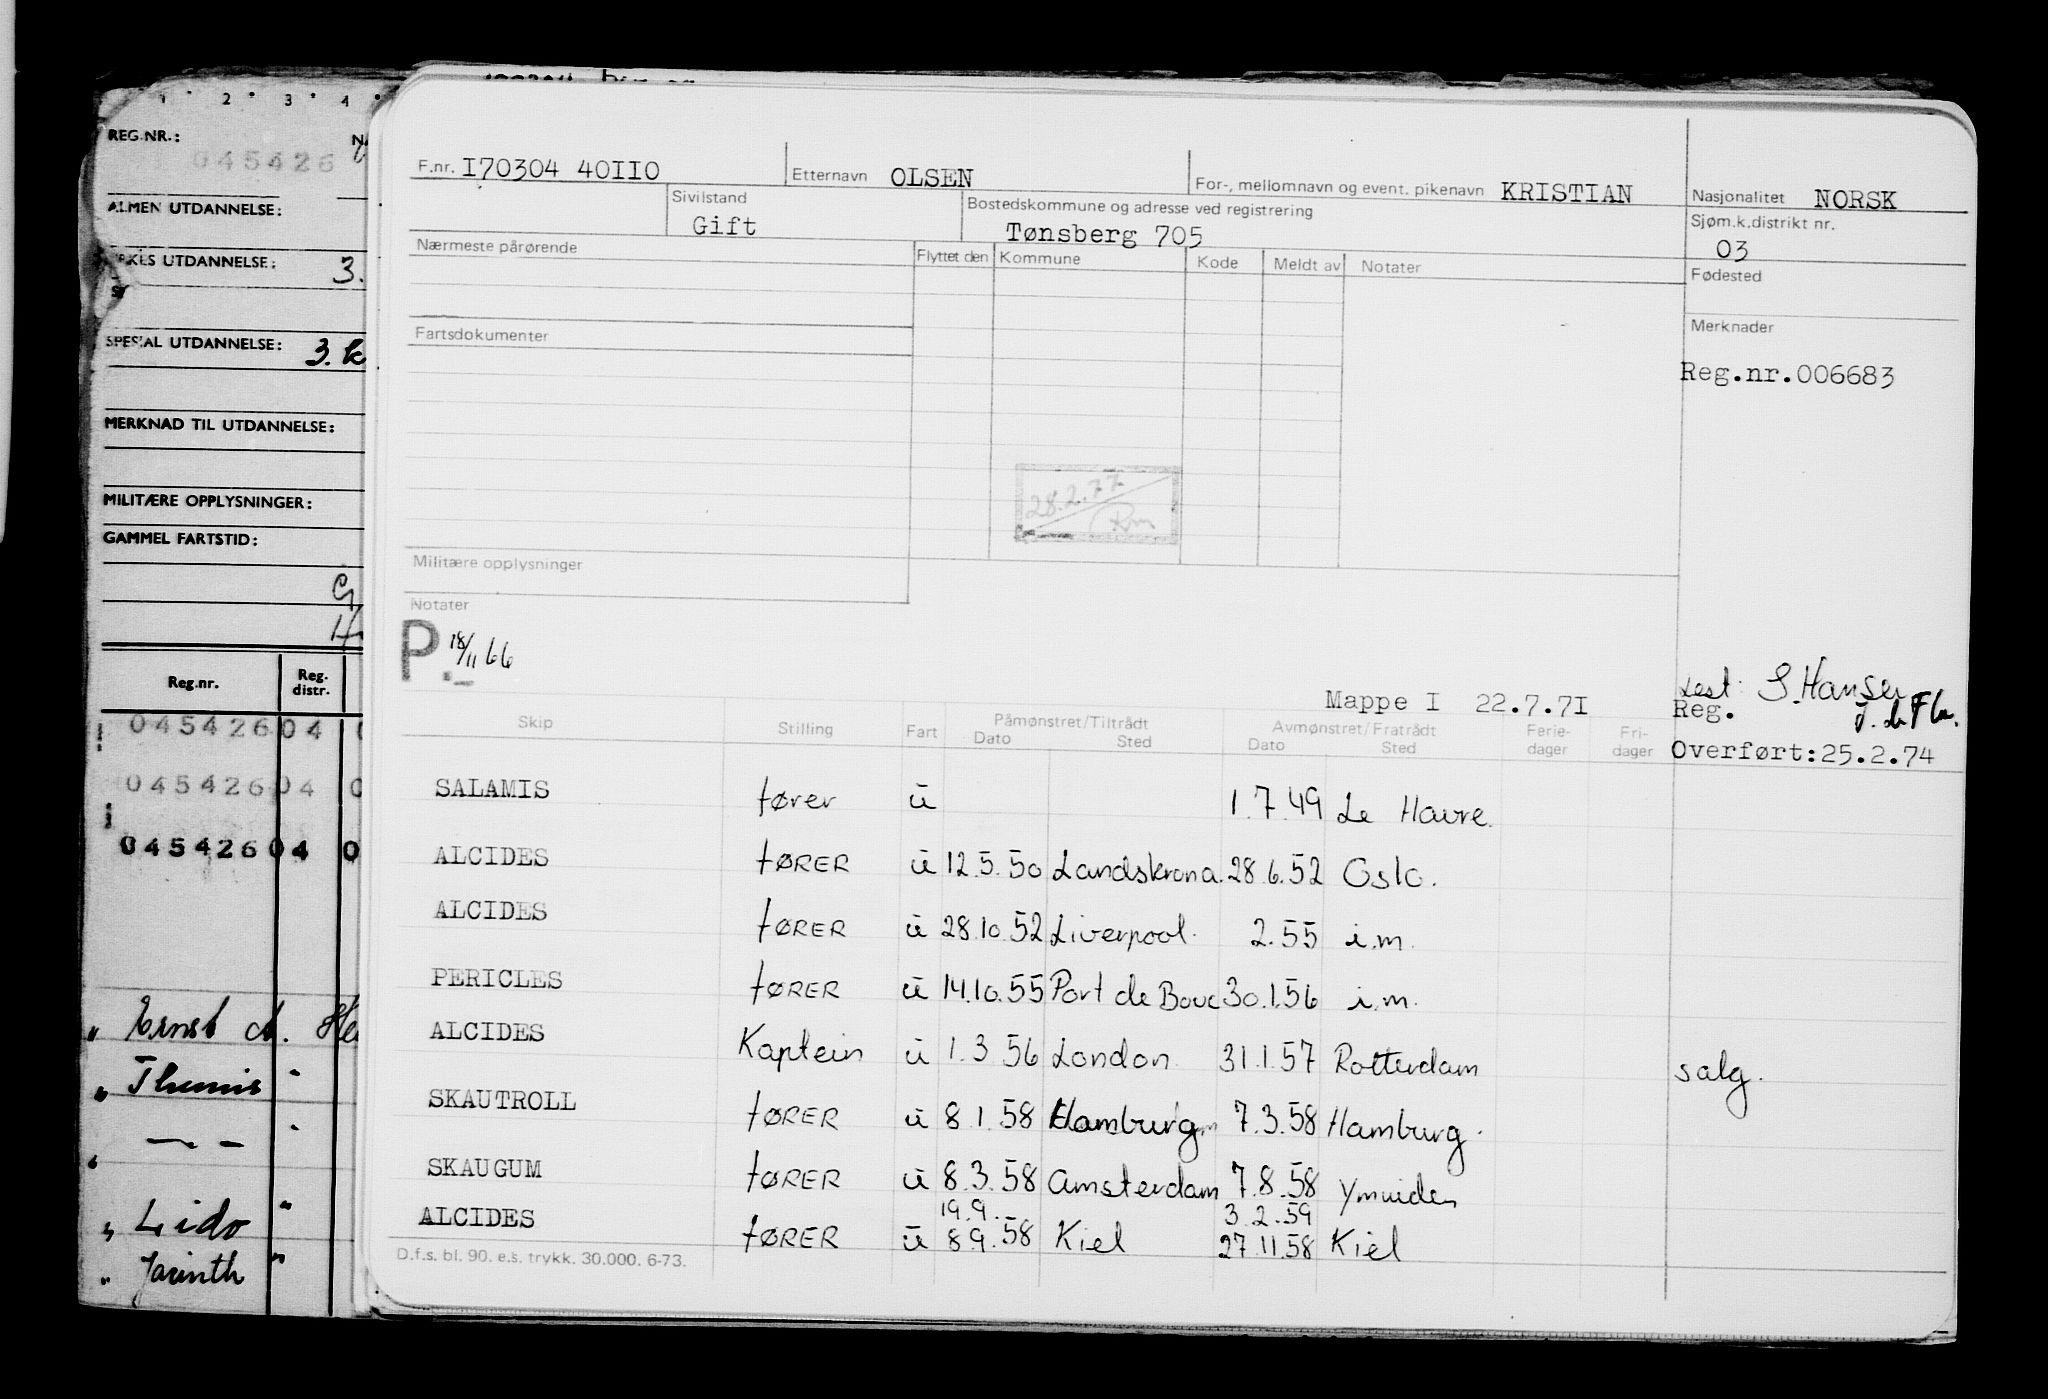 1 2 3 4
REG.NR.:
045426
ALMEN UTDANNELSE:
UTDANNELSE: 3.
SPESIAL UTDANNELSE: 3. k
MERKNAD TIL UTDANNELSE:
MILITÆRE OPPLYSNINGER:
GAMMEL FARTSTID:
Reg.nr. Reg. distr.
045426 04 0
045426 04 0
045426 04 0
" Ernst A. He
" Themis "
" — — "
" Lido "
" Jacinth "
F.nr. I70304 40II0 Etternavn OLSEN For-, mellomnavn og event. pikenavn KRISTIAN Nasjonalitet NORSK
Sivilstand Gift Bostedskommune og adresse ved registrering Tønsberg 705 Sjøm.k.distrikt nr. 03
Nærmeste pårørende Flyttet den Kommune Kode Meldt av Notater Fødested
Fartsdokumenter Merknader
Reg.nr.006683
28.2.77
Rm
Militære opplysninger
Notater
P. 18/11 66
Mappe I 22.7.7I
Lest: S. Hansen
Reg.
Overført:25.2.74
Skip Stilling Fart Påmønstret/Tiltrådt Avmønstret/Fratrådt Ferie- Fri-
Dato Sted Dato Sted dager dager
SALAMIS fører ü 1.7.49 Le Havre.
ALCIDES FØRER ü 12.5.50 Landskrona. 28.6.52 Oslo.
ALCIDES FØRER ü 28.10.52 Liverpool. 2.55 i.m.
PERICLES FØRER ü 14.10.55 Port de Bouc 30.1.56 i.m.
ALCIDES Kaptein ü 1.3.56 London. 31.1.57 Rotterdam salg.
SKAUTROLL FØRER ü 8.1.58 Hamburg 7.3.58 Hamburg.
SKAUGUM FØRER ü 8.3.58 Amsterdam 7.8.58 Ymuiden
19.9. 3.2.59
ALCIDES FØRER ü 8.9.58 Kiel 27.11.58 Kiel
D.f.s. bl. 90. e.s. trykk. 30.000. 6-73.